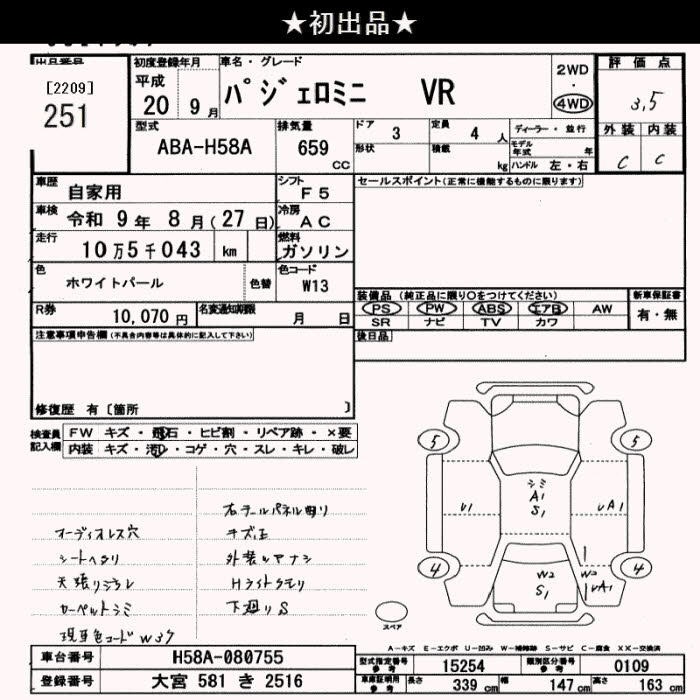 ★初出品★
出品番号
[2209]
251
初度登録年月
平成
20 9月
車名・グレード
パジェロミニ VR
2WD
・
4WD
評価点
3.5
型式
ABA-H58A
排気量
659
CC
ドア
3
定員
4 人
形状
積載
kg
ディーラー・並行
モデル年式 年
ハンドル 左・右
外装 内装
C C
車歴
自家用
シフト
F5
セールスポイント(正常に機能するものに限ります)
車検
令和 9年 8月(27日)
冷房
AC
走行
10万5千043 km
燃料
ガソリン
色
ホワイトパール
色替
色コード
W13
装備品 (純正品に限り○をつけてください)
新車保証書
PS PW ABS エアB AW
有・無
SR ナビ TV カワ
R券
10,070円
名変通知期限
月 日
後日品
注意事項申告欄 (不具合内容等は具体的に記入して下さい)
修復歴 有〔箇所 〕
検査員記入欄
FW キズ・飛石・ヒビ割・リペア跡・×要
内装 キズ・汚れ・コゲ・穴・スレ・キレ・破レ
オーディオレス穴
シートヘタリ
天張リシミ
カーペットシミ
現車色コード W37
右テールパネル曲り
キズ大
Hライトクモリ
下廻りS
5 5
シミ
A1
S1
U1
UA1
4 4
W2
S1
W2
UA1
スペア
A-キズ E-エクボ U-凹み W-補修跡 S-サビ C-腐食 XX-交換済
車台番号
H58A-080755
登録番号
大宮 581 き 2516
型式指定番号 参考
15254
類別区分番号 参考
0109
車庫証明用 参考
長さ 339 cm
幅 147 cm
高さ 163 cm